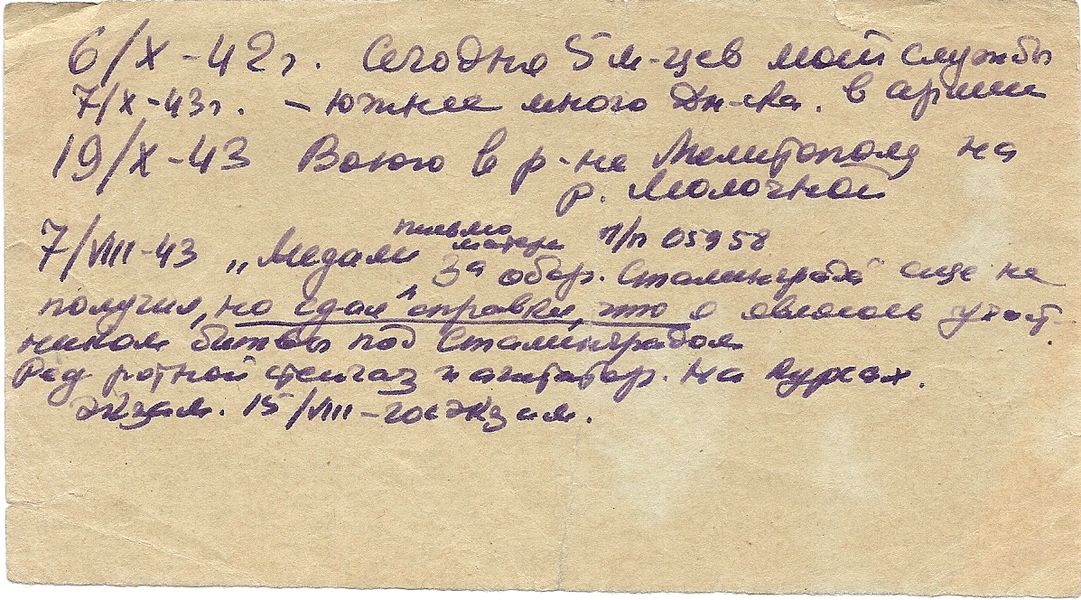 6/X-42г. Сегодня 5 м-цев моей службы
7/X-43г. – южнее много Дн-ска. в армии
19/X-43 Воюю в р-не Мелитополя на
р. Молочной
письмо
матери п/п 05958
7/VIII-43 „Медали За обор. Сталинграда" еще не
получил, но сдал справки, что я являюсь участ-
ником битвы под Сталинградом
Ред ротной стенгаз и агитатор. На курсах.
Экзам. 15/VIII-госэкзам.